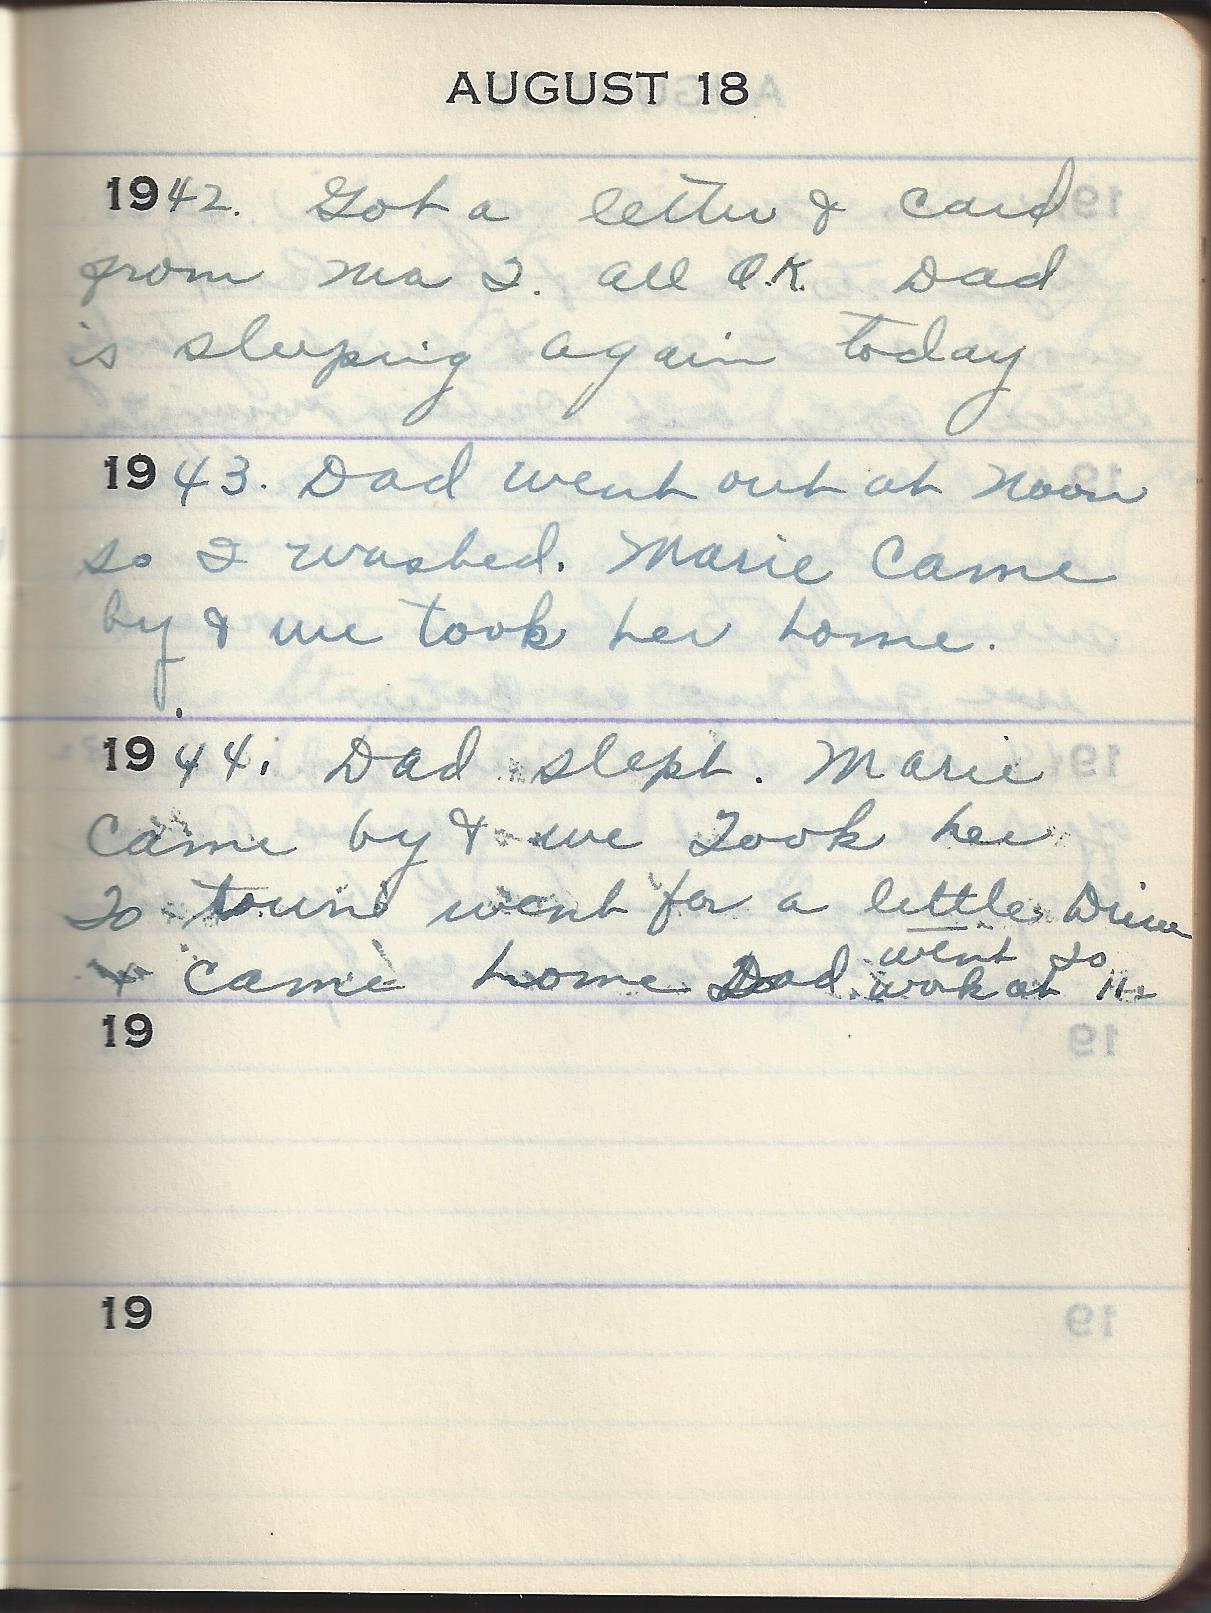 AUGUST 18
1942. Got a letter & card
from Ma T. all O.K. Dad
is sleeping again today
1943. Dad went out at Noon
so I washed. Marie Came
by & we took her home.
1944. Dad slept. Marie
Came by & we Took her
To town went for a little Drive
+ came home Dad went to
work at 11-
19
19